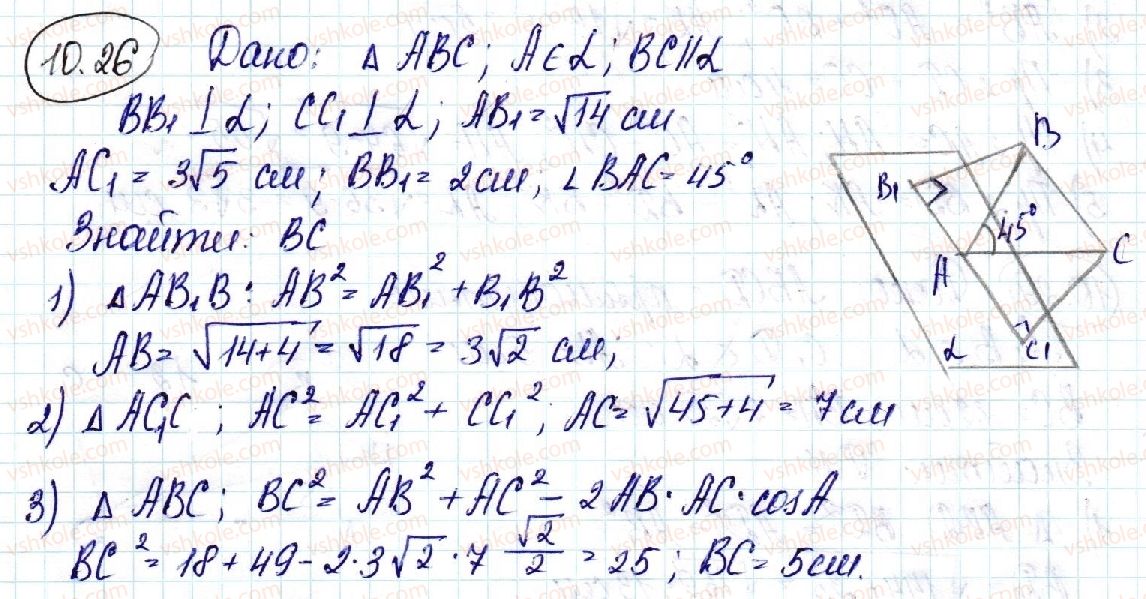 10.26 Дано: △ ABC; A∈α; BC∥α
BB₁⊥α; CC₁⊥α; AB₁=√14 см
AC₁=3√5 см; BB₁=2см; ∠BAC=45°
Знайти: BC
1) △AB₁B: AB²=AB₁²+B₁B²
AB=√14+4=√18=3√2 см;
2) △AC₁C; AC²=AC₁²+CC₁²; AC=√45+4=7см
3) △ABC; BC²=AB²+AC²-2AB·AC·cosA
BC²=18+49-2·3√2·7 √2/2=25; BC=5см.
B
B₁
45°
A
C
α
C₁
vshkole.com